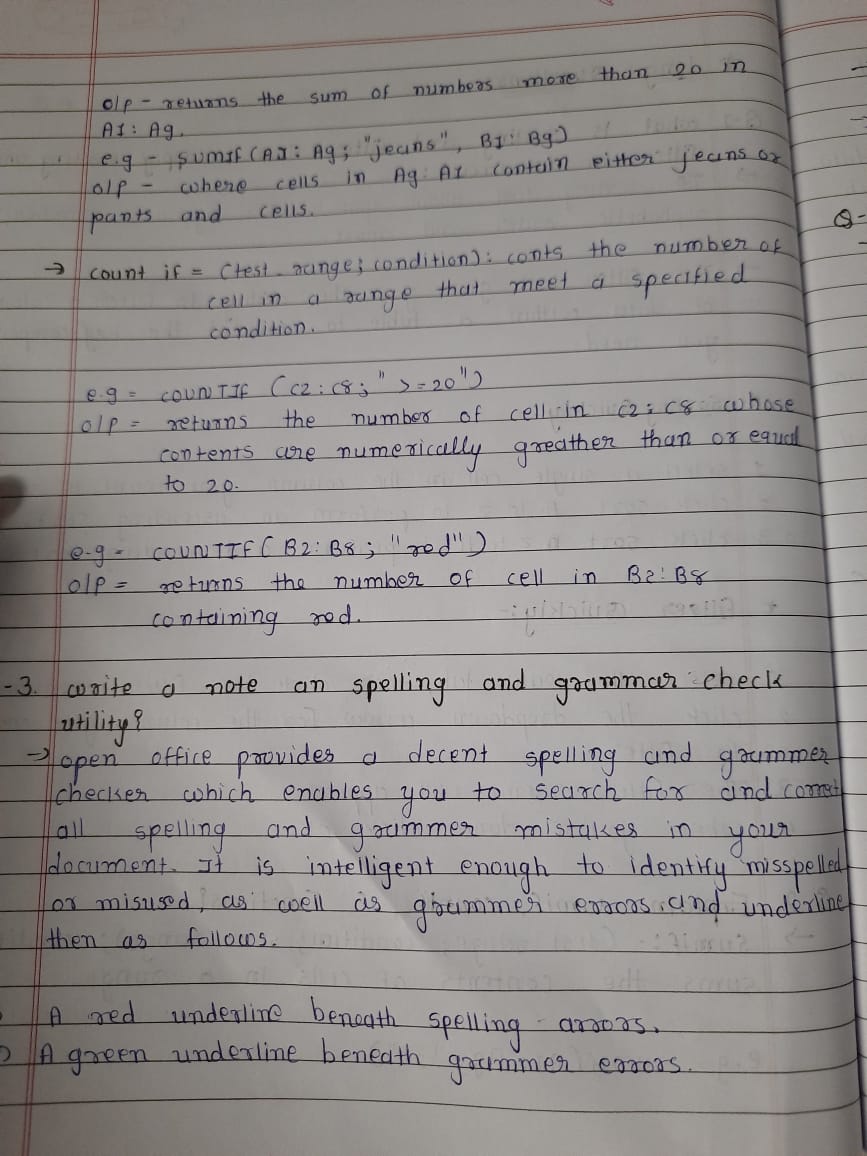 o/p - returns the sum of numbers more than 20 in
A1 : A9.
e.g - SUMIF (A1 : A9 ; "jeans", B1 : B9)
o/p - where cells in A9 : A1 contain either jeans or
pants and cells.
→ count if = (test . range ; condition) : conts the number of
cell in a range that meet a specified
condition.
e.g = COUNTIF (C2 : C8 ; ">=20")
o/p = returns the number of cell in C2 : C8 whose
contents are numerically greather than or equal
to 20.
e.g = COUNTIF ( B2 : B8 ; "red")
o/p = returns the number of cell in B2 : B8
containing red.
-3. write a note an spelling and grammar check
utility?
→ open office provides a decent spelling and grammer
checker which enables you to search for and correct
all spelling and grammer mistakes in your
document. It is intelligent enough to identify misspelled
or misused, as well as grammer errors and underline
then as follows.
A red underline beneath spelling arrors.
A green underline beneath grammer errors.
Q-